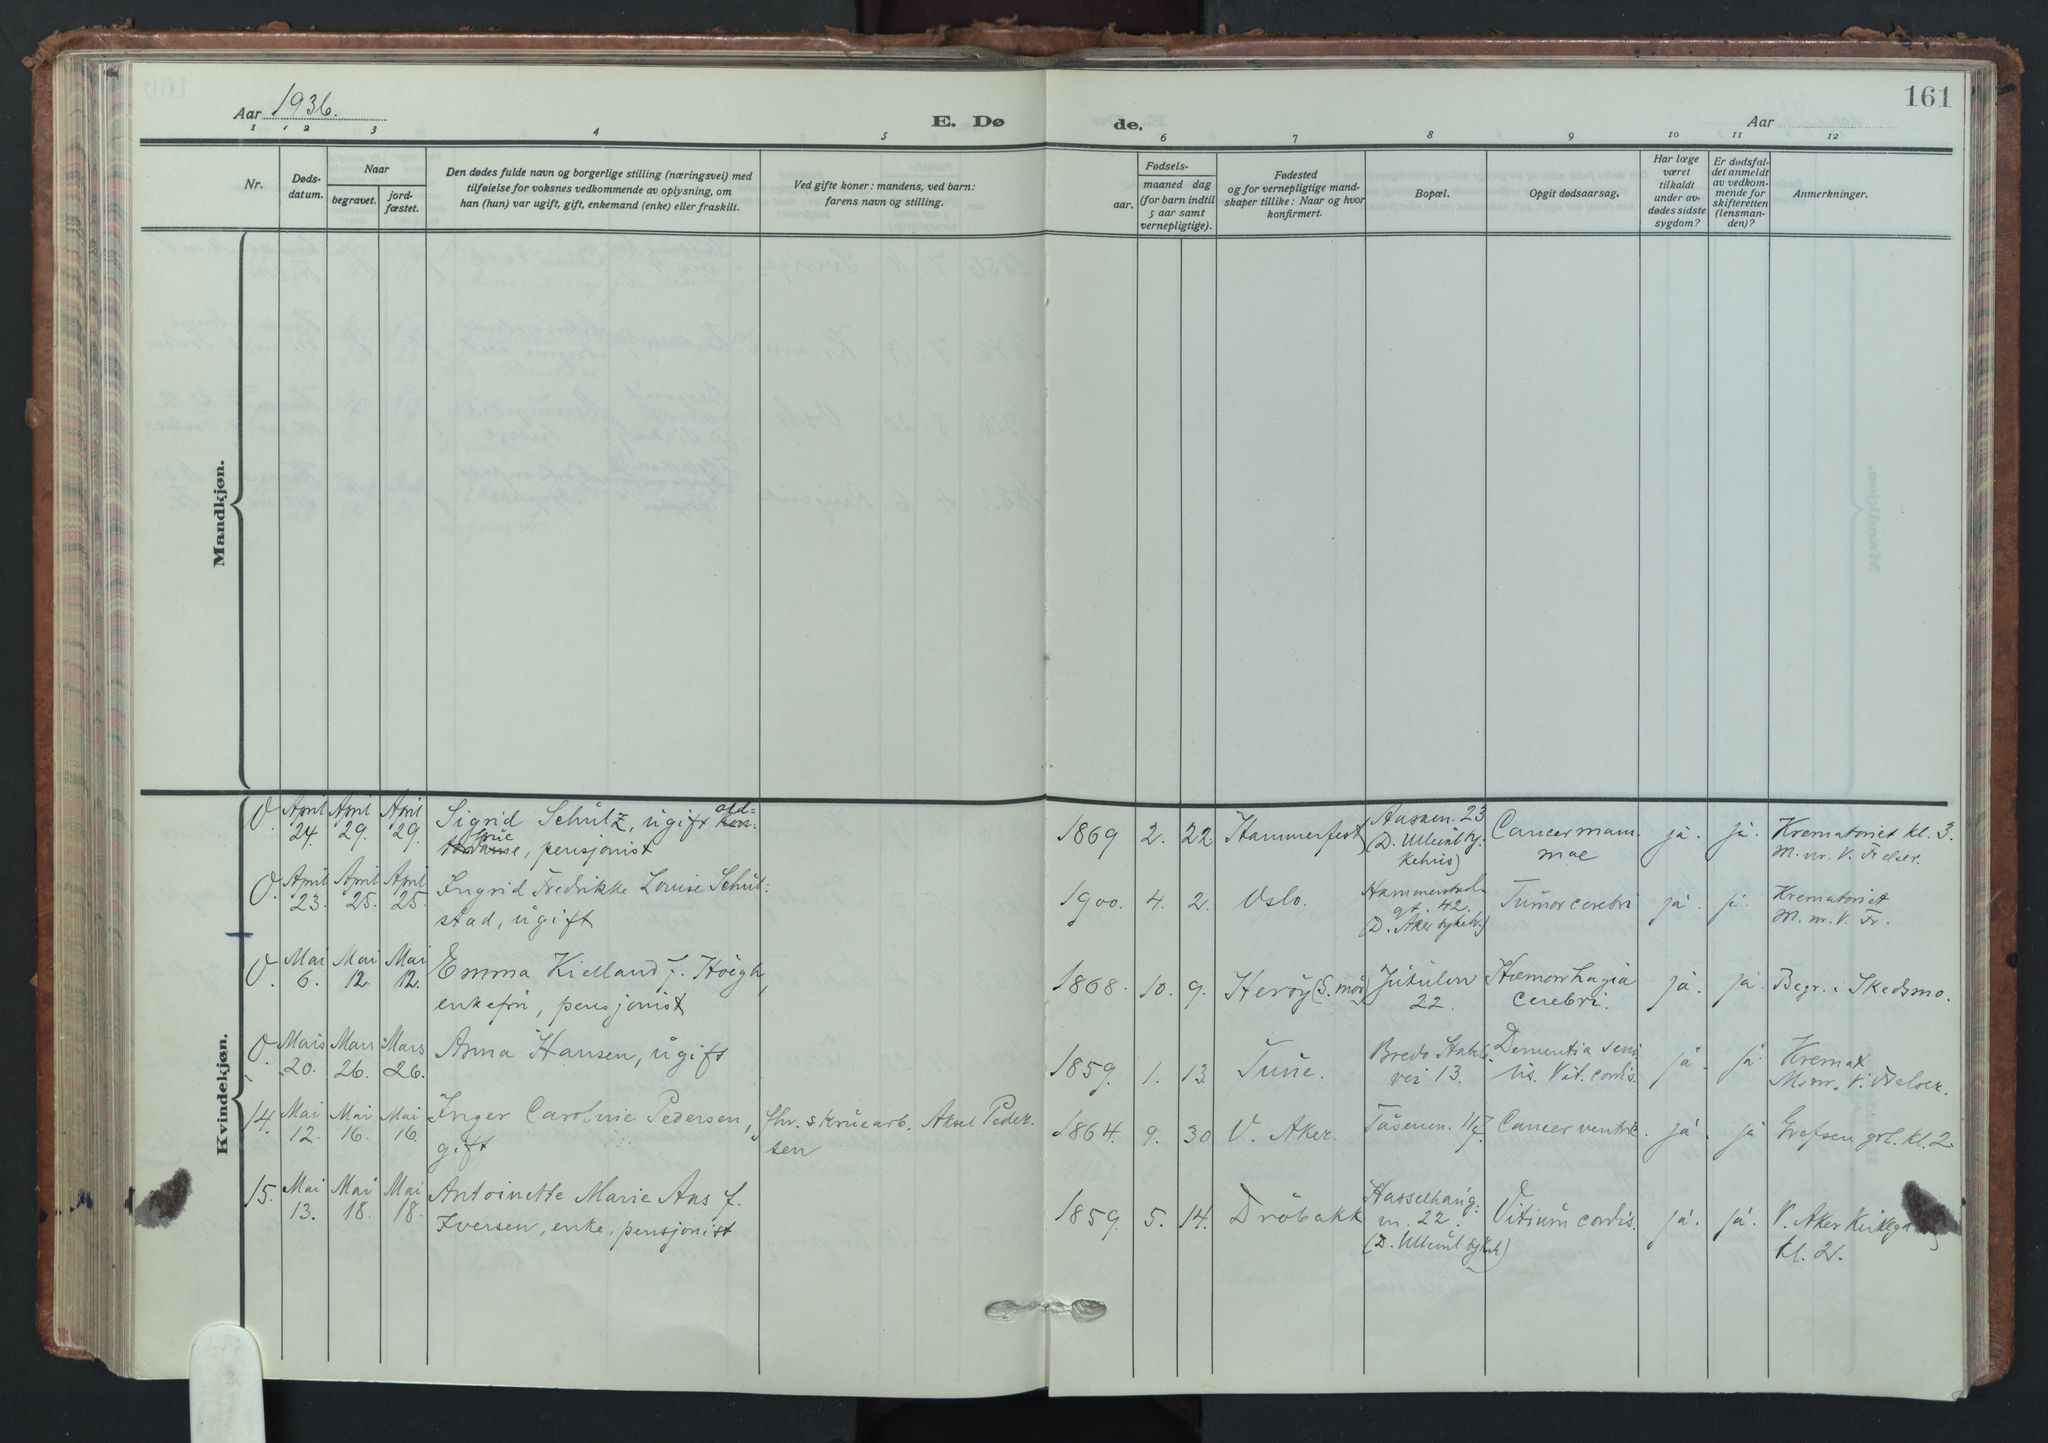 161
Aar 1936.
E. Dø de.
Aar
1 2 3 4 5 6 7 8 9 10 11 12
Nr.
Døds-
datum.
Naar
begravet.
jord-
fæstet.
Den dødes fulde navn og borgerlige stilling (næringsvei) med
tilføielse for voksnes vedkommende av oplysning, om
han (hun) var ugift, gift, enkemand (enke) eller fraskilt.
Ved gifte koner: mandens, ved barn:
farens navn og stilling.
Fødsels-
aar.
maaned dag
(for barn indtil
5 aar samt
vernepligtige).
Fødested
og for vernepligtige mand-
skaper tillike: Naar og hvor
konfirmert.
Bopæl.
Opgit dødsaarsag.
Har læge
været
tilkaldt
under av-
dødes sidste
sygdom?
Er dødsfal-
det anmeldt
av vedkom-
mende for
skifteretten
(lensman-
den)?
Anmerkninger.
Mandkjøn.
Kvindekjøn.
O. April 24. April 29. April 29.
Sigrid Schulz, ugift
pensjonist
1869 2. 22 Hammerfest
Aasen. 23
(D. Ullevål sy-
kehus)
Cancer mam-
mae
ja. ja.
Krematoriet kl. 3.
M. nr. V. Frelser.
O. April 23. April 25. April 25.
Ingrid Fredrikke Louise Schul-
stad, ugift
1900. 4. 2. Oslo.
gt. 42.
(D. Aker sykeh.)
Tumor cerebri
ja. ja.
Krematoriet
M. nr. V. Fr.
O. Mai 6. Mai 12. Mai 12.
Emma Kielland f. Høegh,
enkefru, pensjonist
1868. 10. 9. Herøy (S. møre)
Jutulvn
22.
Hæmorrhagia
cerebri.
ja. ja.
Begr. i Skedsmo.
O. Mars 20. Mars 26. Mars 26.
Anna Hansen, ugift
1859. 1. 13. Tune.
Bredo Stabells
vei 13.
Dementia seni-
lis. Vit. cordis.
ja. ja.
Kremat.
M. nr. V. Frelser.
14. Mai 12. Mai 16. Mai 16.
Inger Caroline Pedersen,
gift
fhv. skruearb. Aksel Peder-
sen
1864. 9. 30 V. Aker.
Tåsenvn. 117.
Cancer ventric.
ja. ja
Grefsen grl. kl. 2
15. Mai 13. Mai 18. Mai 18.
Antoinette Marie Aas f.
Iversen, enke, pensjonist
1859. 5. 14. Drøbakk
Hasselhaug-
vn. 22.
(D. Ullevål sykeh.)
Vitium cordis.
ja. ja.
V. Aker Kirkeg
kl. 2.